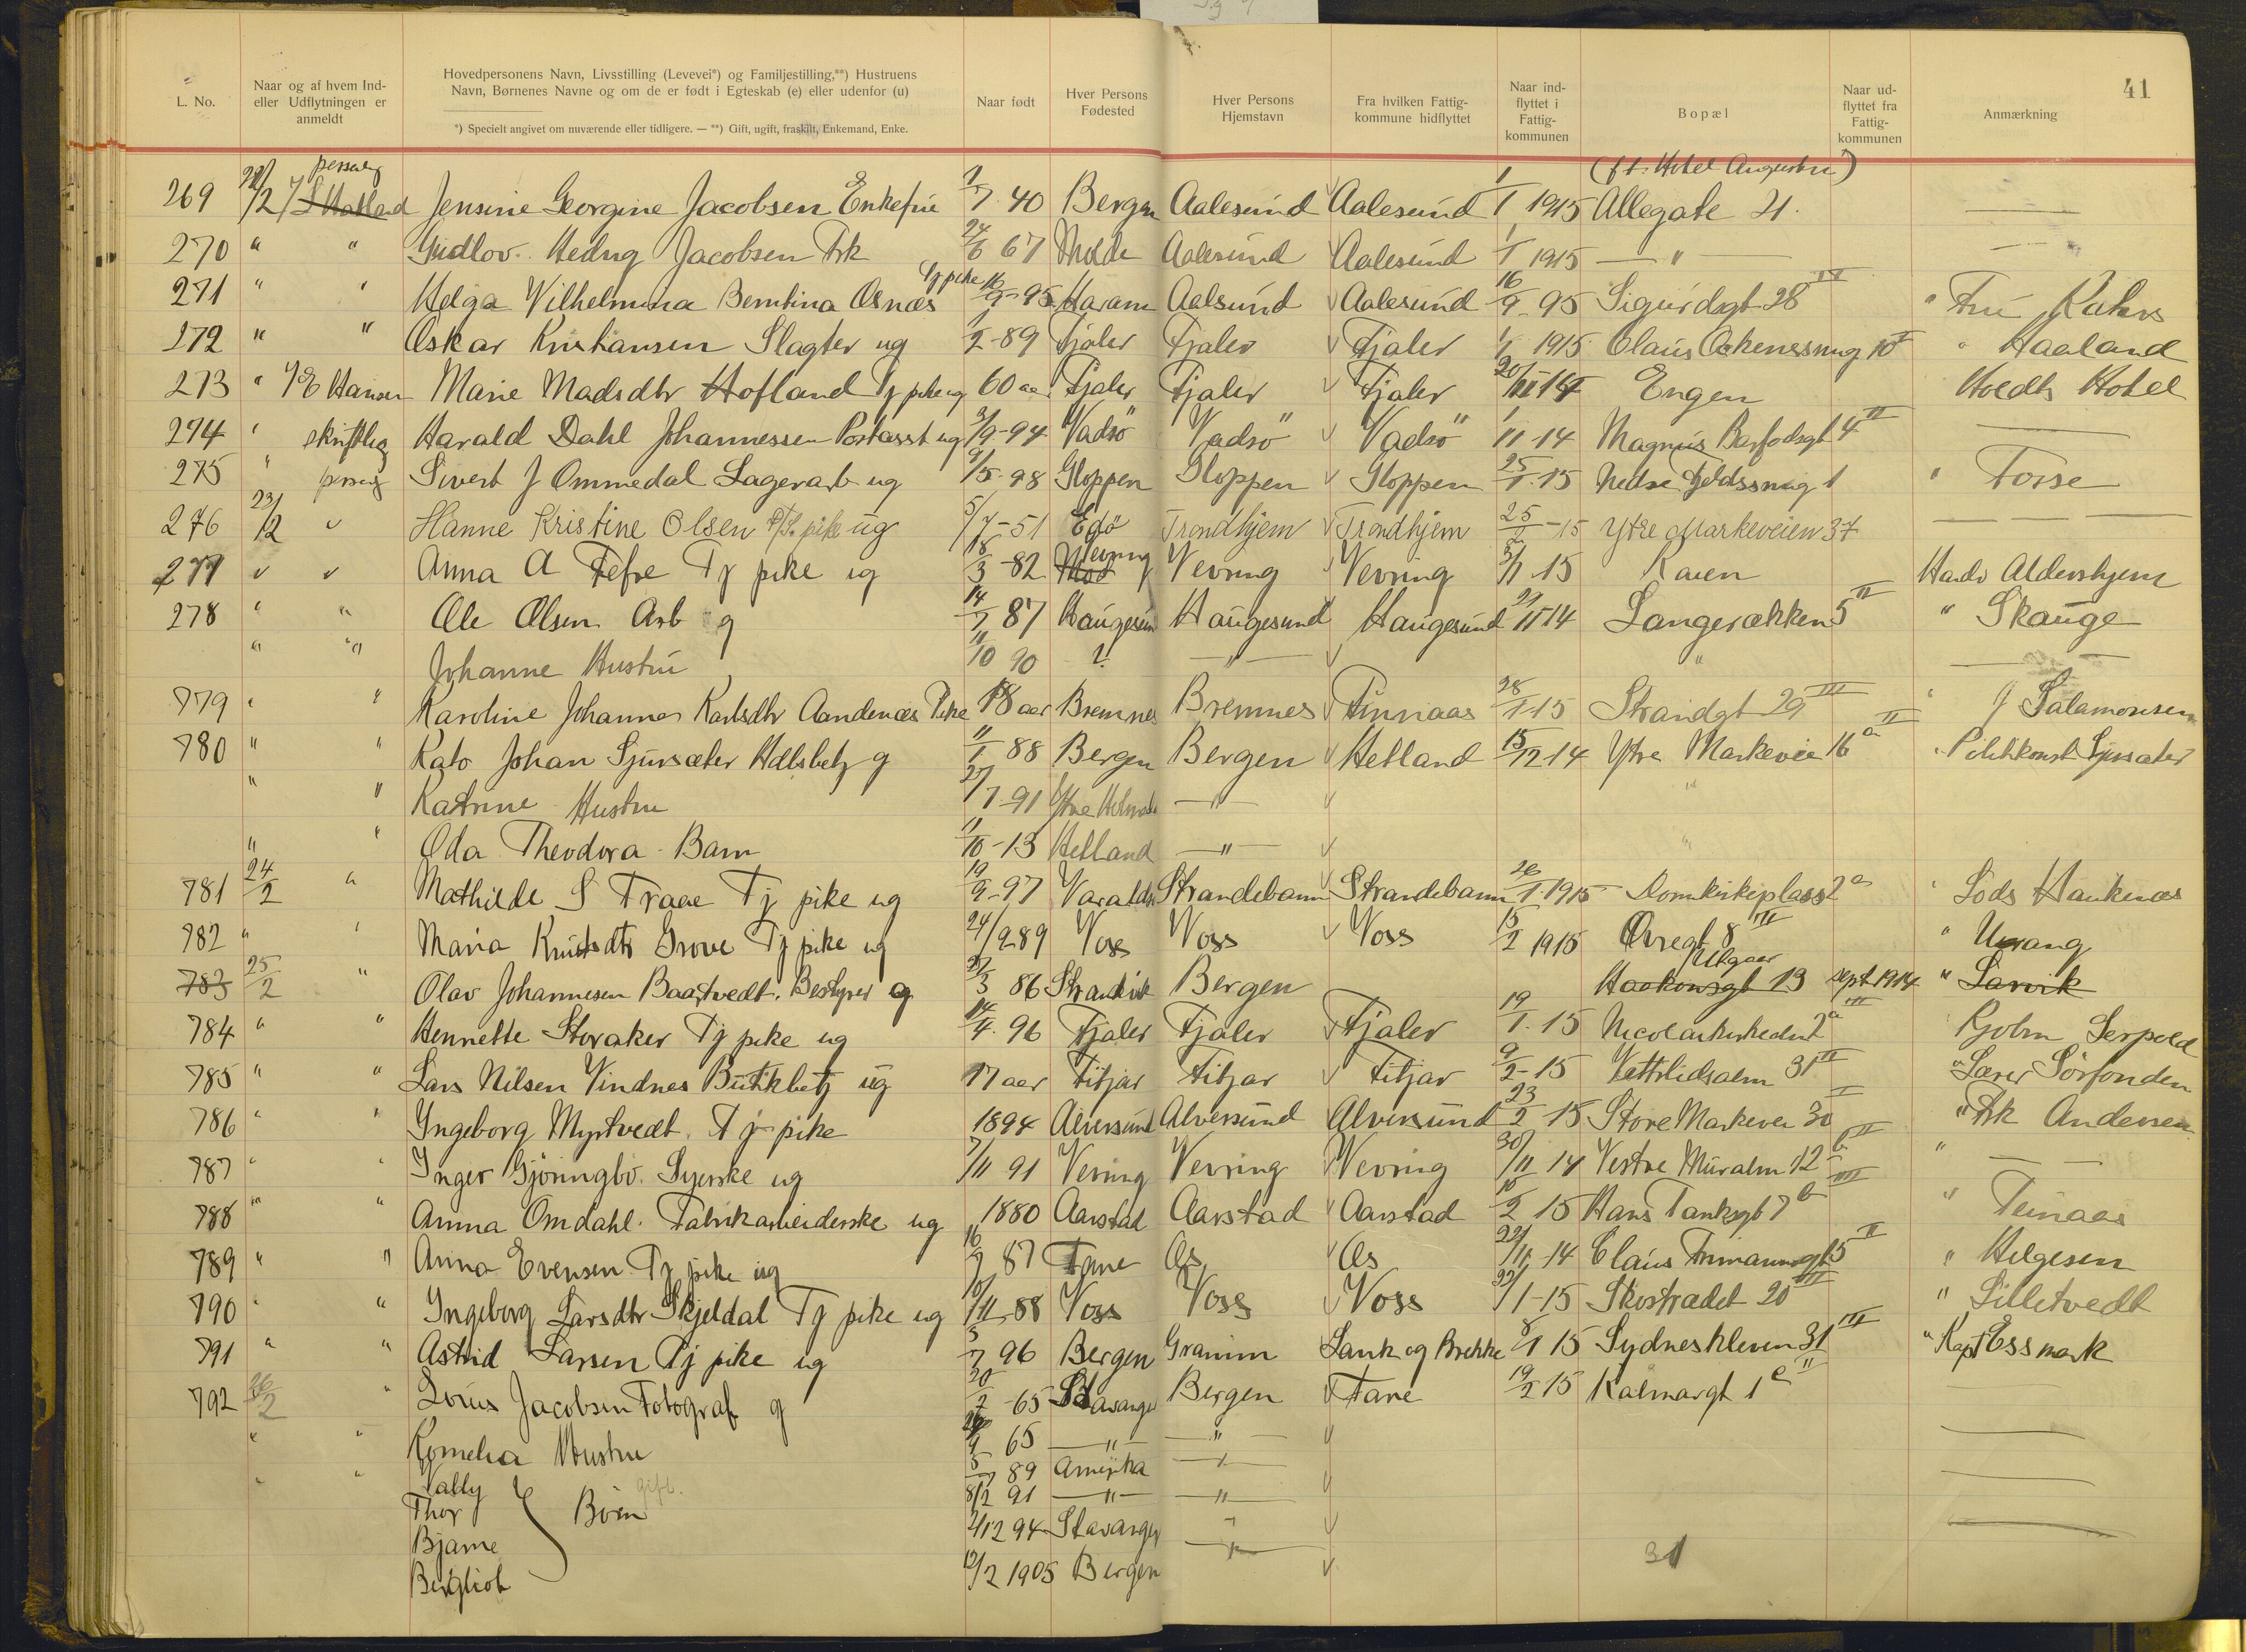 41
L. No.
Naar og af hvem Ind- eller Udflytningen er anmeldt
Hovedpersonens Navn, Livsstilling (Levevei*) og Familjestilling,**) Hustruens Navn, Børnenes Navne og om de er født i Egteskab (e) eller udenfor (u)
*) Specielt angivet om nuværende eller tidligere. — **) Gift, ugift, fraskilt, Enkemand, Enke.
Naar født
Hver Persons Fødested
Hver Persons Hjemstavn
Fra hvilken Fattig- kommune hidflyttet
Naar ind- flyttet i Fattig- kommunen
Bopæl
Naar ud- flyttet fra Fattig- kommunen
Anmærkning
269 22/2 Jensine Georgine Jacobsen Enkefrue 1/7 40 Bergen Aalesund Aalesund 1/1 1915 Allegate 21.
270 " " Jacobsen Frk 24/6 67 Molde Aalesund Aalesund 1/1 1915 — " —
271 " " Helga Vilhelmina Berntina Osnæs Tj pike 16/9-95 Haram Aalsund Aalesund 16/9-95 Sigurdsgt 28 III " Fru
272 " " Oskar Kristiansen Slagter ug 1/2-89 Fjaler Fjaler Fjaler 1/1 1915 Claus 10 II " Haaland
273 " Hansen Marie Madsdtr Hofland Tj pike ug 60 aar Fjaler Fjaler Fjaler 20/11 14 Engen Holdts Hotel
274 " skriftlig Harald Dahl Johannessen Postasst ug 3/9-94 Vadsö Vadsö Vadsö 1/11-14 Magnus Barfodsgt 4 III
275 " Sivert J Ommedal Lagerarb ug 9/5-98 Gloppen Gloppen Gloppen 25/1-15 Nedre Fjeldssmug 1 " Fosse
276 23/2 " Hanne Kristine Olsen Tj. pike ug 5/7-51 Edö Trondhjem Trondhjem 25/2-15 Ytre Markeveien 37
277 " " Anna A Tefre Tj pike ug 18/3-82 Vevring Vevring Vevring 3/1-15 Kaien Aldershjem
278 " " Ole Olsen Arb g 14/7 87 Haugesun Haugesund Haugesund 29/11 14 Langerækken 5 II " Skauge
" " Johanne Hustru 11/10 90 ? — " — "
779 " " Karoline Johanna Karlsdtr Aandenæs Pike 18 aar Bremnes Bremnes Finnaas 28/1-15 Strandgt 29 III " J Salamonsen
780 " " Kato Johan Sjursæter g 11/1 88 Bergen Bergen Hetland 15/12 14 Ytre Markevei 16 a II " Politikonst Sjursæter
" " Katrine Hustru 27/7-91 Ytre — " — "
" " Oda Theodora Barn 11/10-13 Hetland — " — "
781 24/2 " Mathilde S Traae Tj pike ug 19/9-97 Varaldsö Strandebarm Strandebarm 26/1-1915 Domkirkeplass 2 a " Lods Haukenæs
782 " " Maria Knutsdtr Grove Tj pike ug 24/2 89 Voss Voss Voss 15/2 1915 Øvregt 8 III "
783 25/2 " Olav Johannesen Baartvedt. Bestyrer g 27/3 86 Strandvik Bergen Haakonsgt 13 Utgaar sept 1914 " Larvik
784 " " Henrette Storaker Tj pike ug 14/4. 96 Fjaler Fjaler Fjaler 19/1. 15 2 a III " Kjobm
785 " " Lars Nilsen Vindnes Butikbetj ug 17 aar Fitjar Fitjar Fitjar 9/2-15 Vetrlidsalm 31 III " Lærer Sörfonden
786 " " Ingeborg Myrtvedt. Tj pike 1894 Alversund Alversund Alversund 23/2 15 Store Markevei 30 I " Frk Andersen
787 " " Inger Gjöringbö. Syerske ug 7/11 91 Vevring Vevring Vevring 30/11 14 Vestre Muralm 12 b II " —
788 " " Anna Omdahl. Fabrikarbeiderske ug 1880 Aarstad Aarstad Aarstad 15/2 15 Hans Tanksgt 7 b III "
789 " " Anna Evensen Tj pike ug 16/9 87 Fane Os Os 22/11-14 Claus 15 II " Helgesen
790 " " Ingeborg Larsdtr Skjeldal Tj pike ug 10/11-88 Voss Voss Voss 22/1-15 Skostrædet 20 III " Lilletvedt
791 " " Astrid Larsen Tj pike ug 5/7 96 Bergen Granvin Lavik og Brekke 8/1 15 Sydneskleven 31 III " Kapt Essmark
792 26/2 " Jacobsen Fotograf g 30/7-65 Stavanger Bergen Fane 19/2 15 Kalmargt 1 c II
" " Kornelia Hustru 9 65 — " — — " —
" " Vally gift. 5/7 89 Amerika — " —
Thor } Børn 8/2 91 — " — — " —
Bjarne 2/12 94 Stavanger "
Bergliot 12/2 1905 Bergen "
31